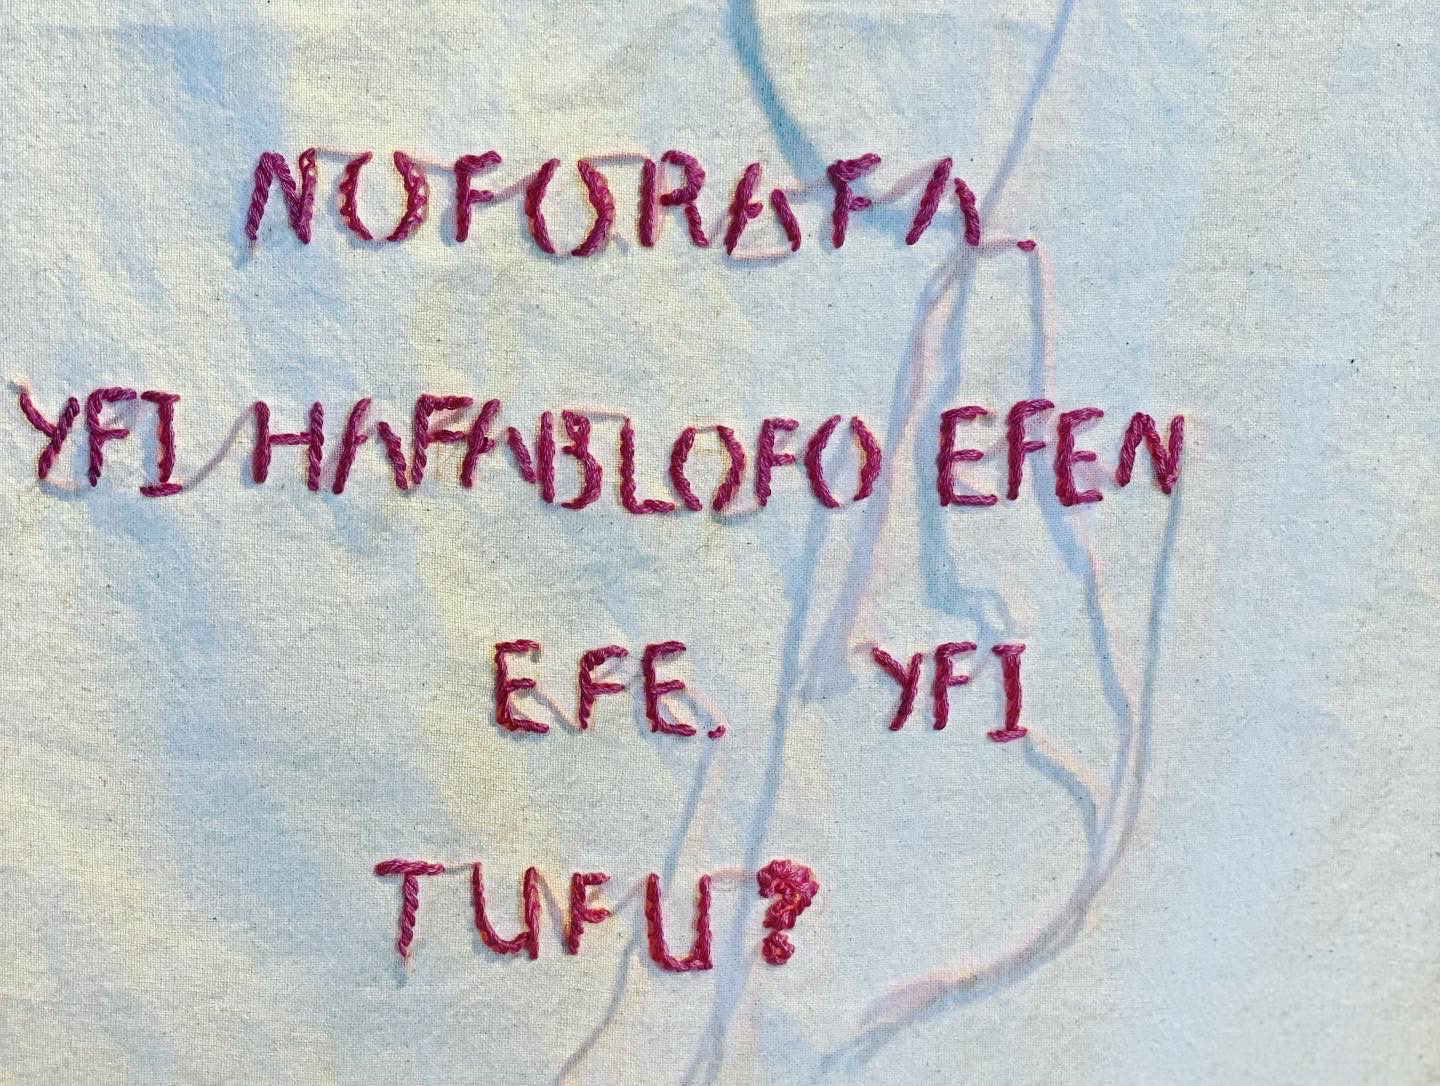 NOFORAFA.
YFI HAFABLOFO EFEN
EFE. YFI
TUFU?